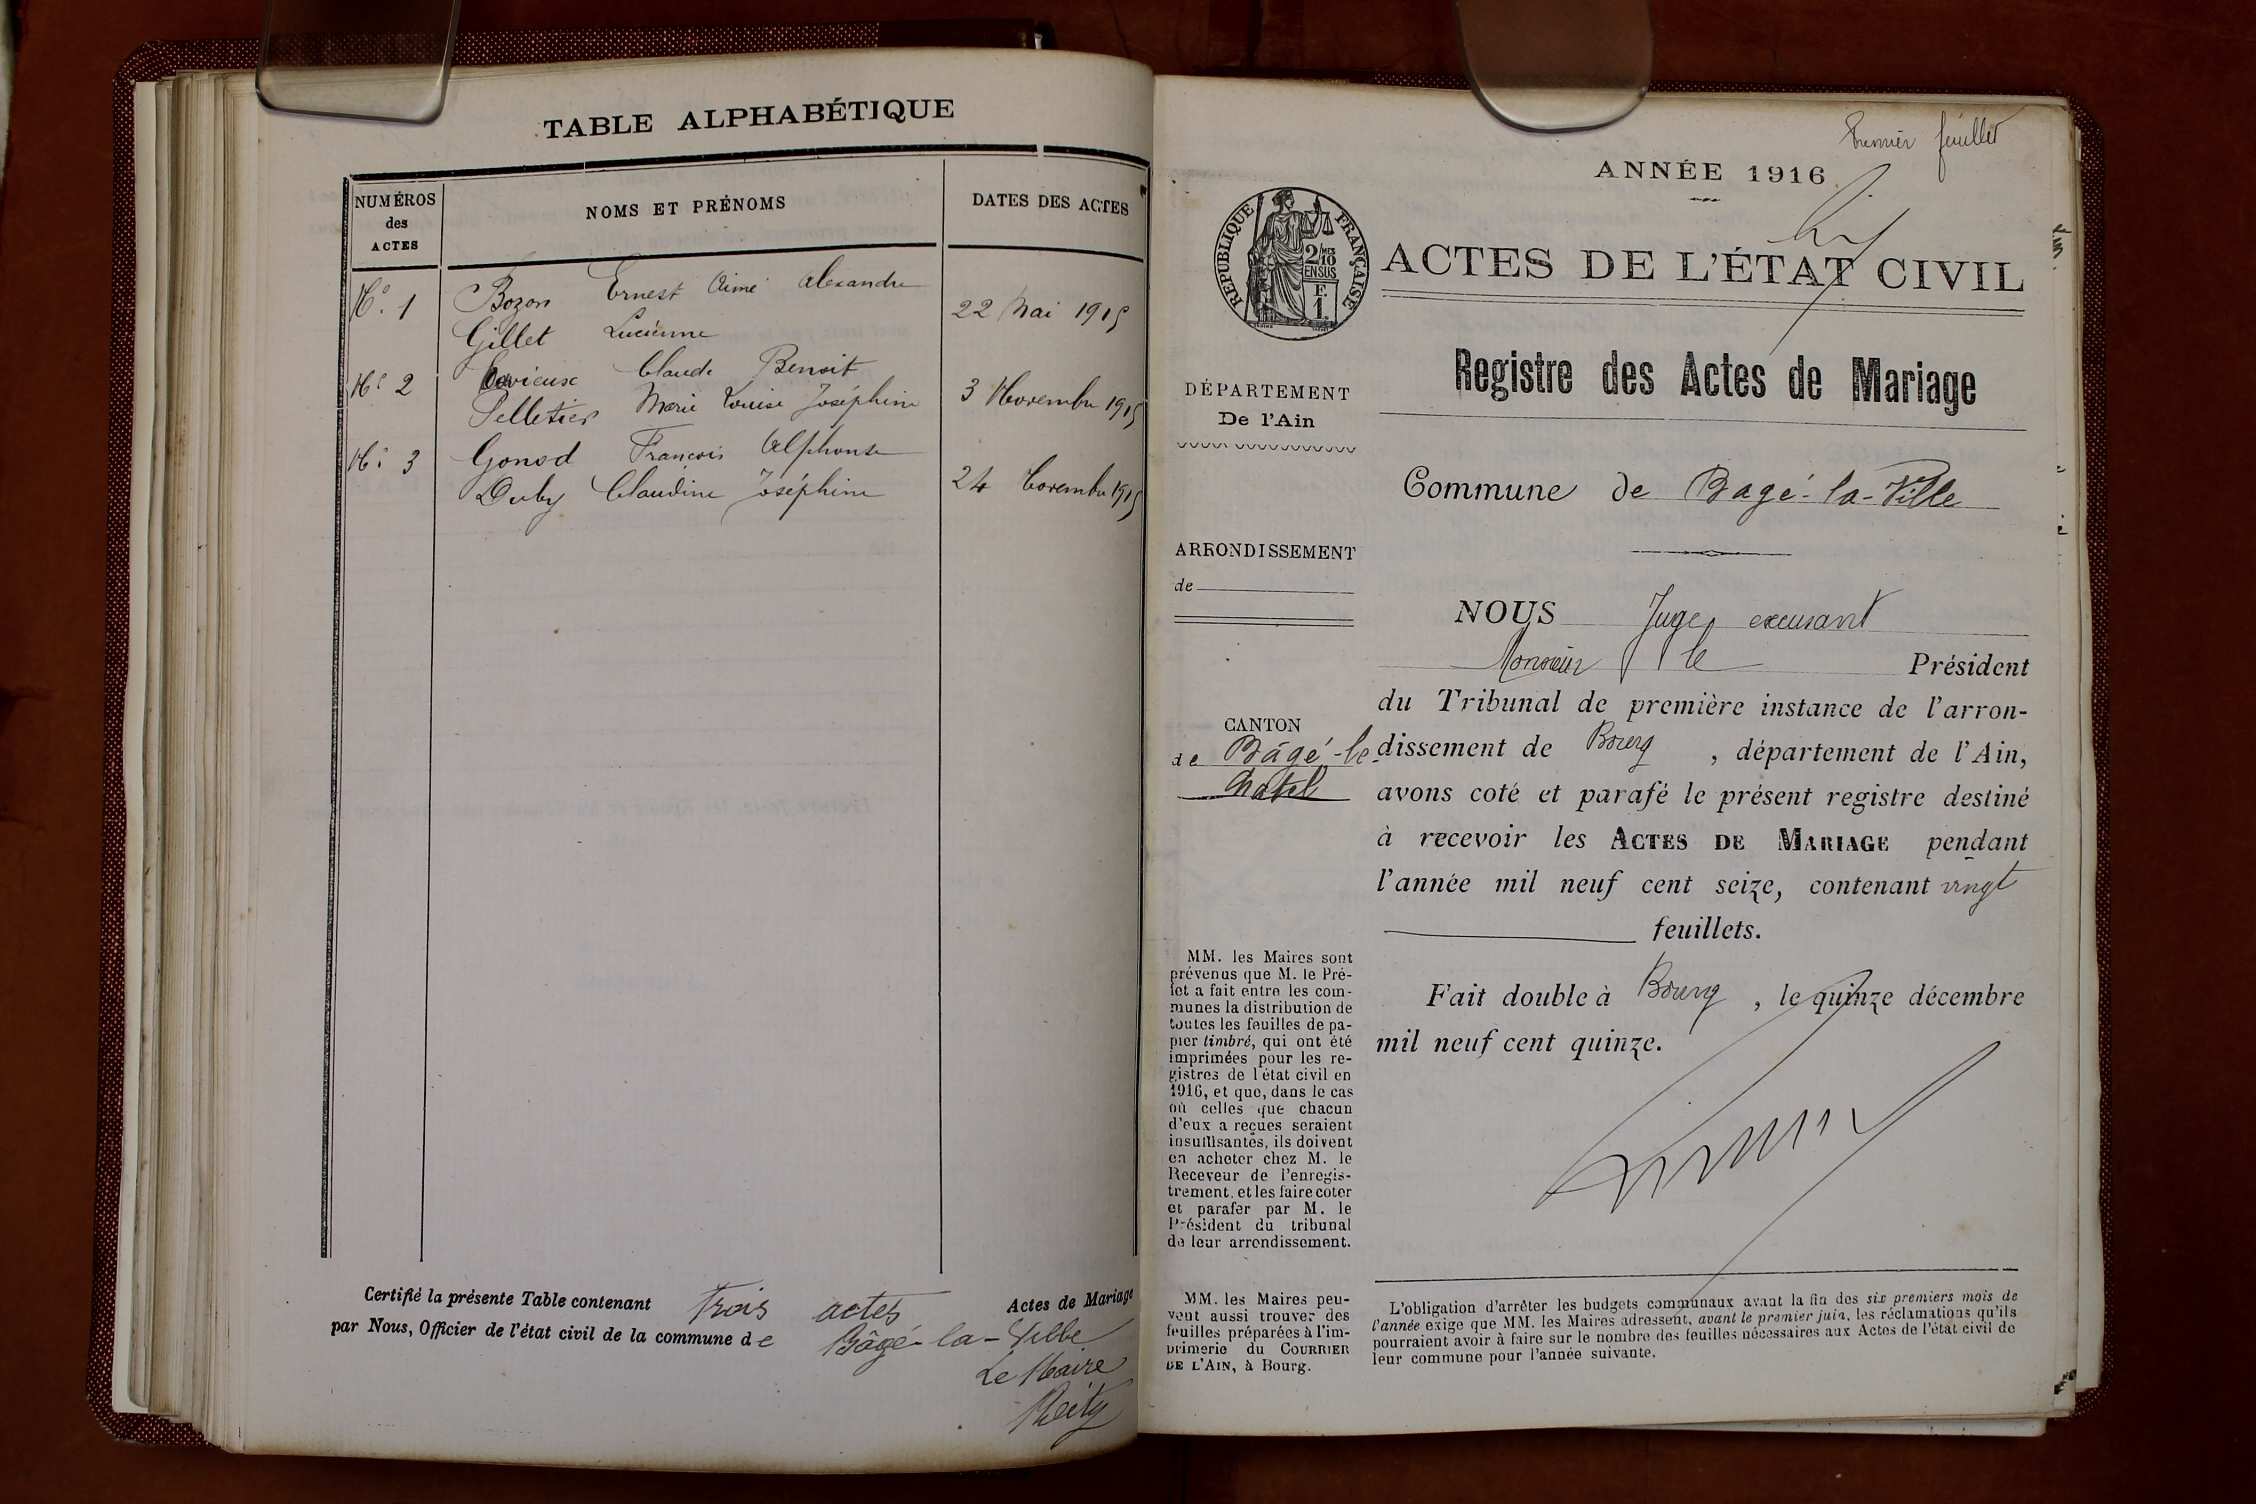 TABLE ALPHABÉTIQUE
NUMÉROS
des
ACTES
NOMS ET PRÉNOMS
DATES DES ACTES
N° 1
Bozon Ernest Aimé Alexandre
Gillet Lucienne
22 Mai 1915
N° 2
Claude Benoit
Pelletier Marie Louise Joséphine
3 Novembre 1915
N° 3
Gonod François Alphonse
Duby Claudine Joséphine
24 Novembre 1915
Certifié la présente Table contenant trois actes Actes de Mariage
par Nous, Officier de l'état civil de la commune de Bâgé-la-Ville
Le Maire
Premier feuillet
ANNÉE 1916
RÉPUBLIQUE FRANÇAISE
2/10
EN SUS
F.
1.
ACTES DE L'ÉTAT CIVIL
Registre des Actes de Mariage
DÉPARTEMENT
De l'Ain
Commune de Bagé-la-Ville
ARRONDISSEMENT
de
CANTON
de Bâgé-le-
Châtel
NOUS Juge excusant
Monsieur le Président
du Tribunal de première instance de l'arron-
dissement de Bourg, département de l'Ain,
avons coté et parafé le présent registre destiné
à recevoir les ACTES DE MARIAGE pendant
l'année mil neuf cent seize, contenant vingt
feuillets.
Fait double à Bourg, le quinze décembre
mil neuf cent quinze.
MM. les Maires sont
prévenus que M. le Pré-
fet a fait entre les com-
munes la distribution de
toutes les feuilles de pa-
pier timbré, qui ont été
imprimées pour les re-
gistres de l'état civil en
1916, et que, dans le cas
où celles que chacun
d'eux a reçues seraient
insuffisantes, ils doivent
en acheter chez M. le
Receveur de l'enregis-
trement, et les faire coter
et parafer par M. le
Président du tribunal
de leur arrondissement.
MM. les Maires peu-
vent aussi trouver des
feuilles préparées à l'im-
primerie du COURRIER
DE L'AIN, à Bourg.
L'obligation d'arrêter les budgets communaux avant la fin des six premiers mois de
l'année exige que MM. les Maires adressent, avant le premier juin, les réclamations qu'ils
pourraient avoir à faire sur le nombre des feuilles nécessaires aux Actes de l'état civil de
leur commune pour l'année suivante.